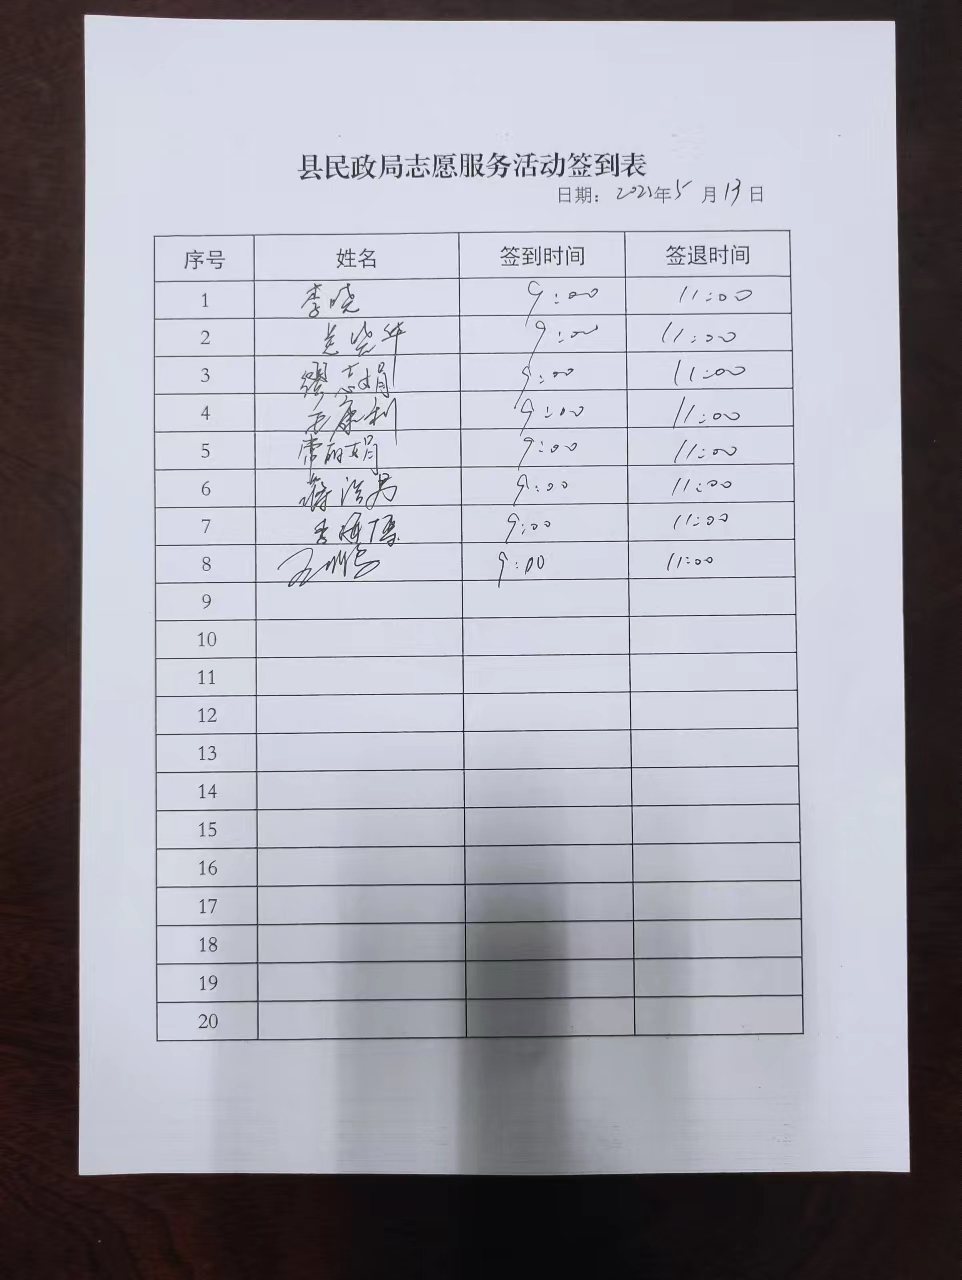 县民政局志愿服务活动签到表
日期：2021年5月13日
序号 姓名 签到时间 签退时间
1 李晓 9:00 11:00
2 9:00 11:00
3 缪志娟 9:00 11:00
4 王康利 9:00 11:00
5 常丽娟 9:00 11:00
6 蒋浩男 9:00 11:00
7 9:00 11:00
8 9:00 11:00
9
10
11
12
13
14
15
16
17
18
19
20